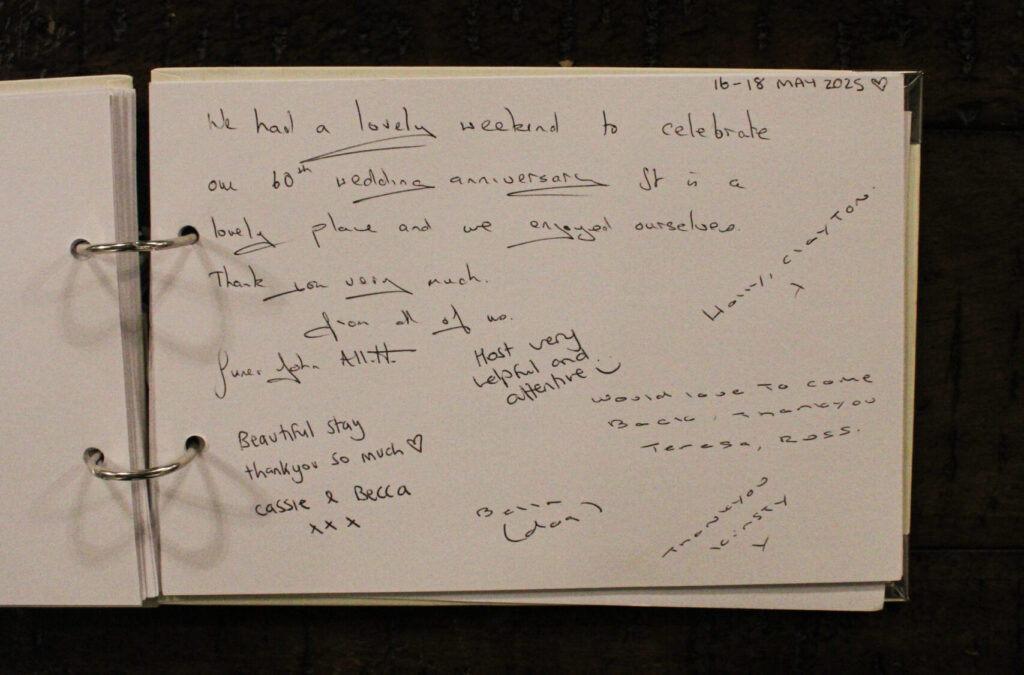 16-18 MAY 2025 ♡
We had a lovely weekend to celebrate
our 60th wedding anniversary It is a
lovely place and we enjoyed ourselves.
Thank you very much.
from all of us.
John
Host very
helpful and
attentive
Would love to come
Back, Thankyou
Teresa, Ross.
Beautiful stay
thankyou so much ♡
Cassie & Becca
xxx
(dog)
Thankyou
Kirsty